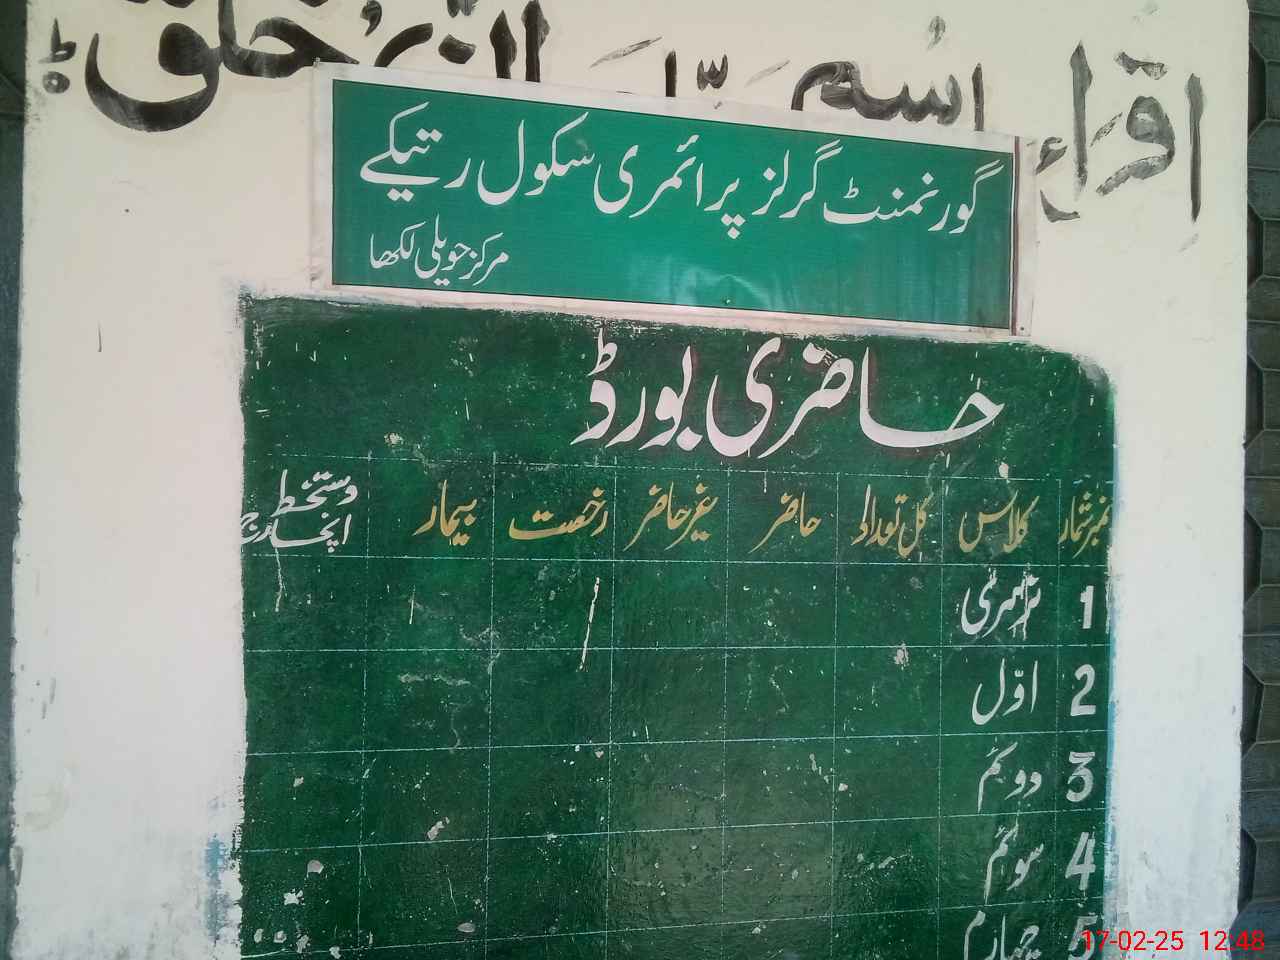 اقراء اسم ربک الذی خلق
گورنمنٹ گرلز پرائمری سکول رتیکے
مرکز حویلی لکھا
حاضری بورڈ
نمبر شمار کلاس کل تعداد حاضر غیر حاضر رخصت بیمار دستخط انچارج
1 نرسری
2 اوّل
3 دوئم
4 سوئم
5 چہارم
17-02-25 12:48